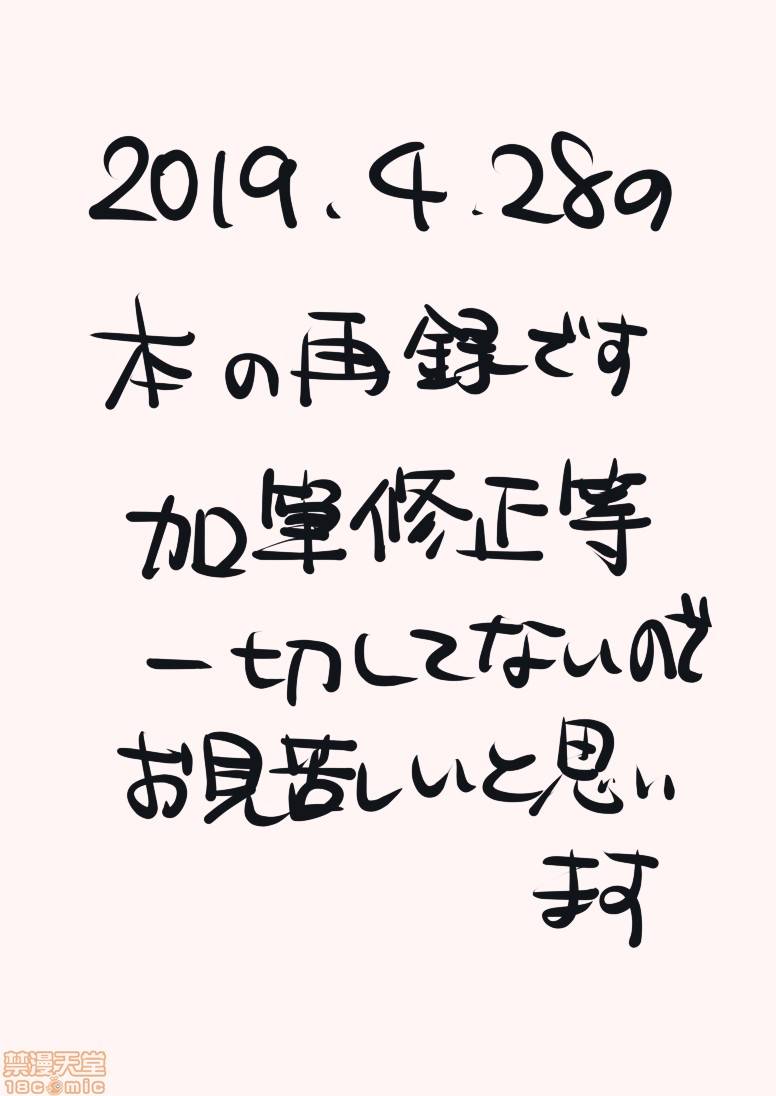 2019.4.28の
本の再録です
加筆修正等
一切してないので
お見苦しいと思い
ます
禁漫天堂
18comic